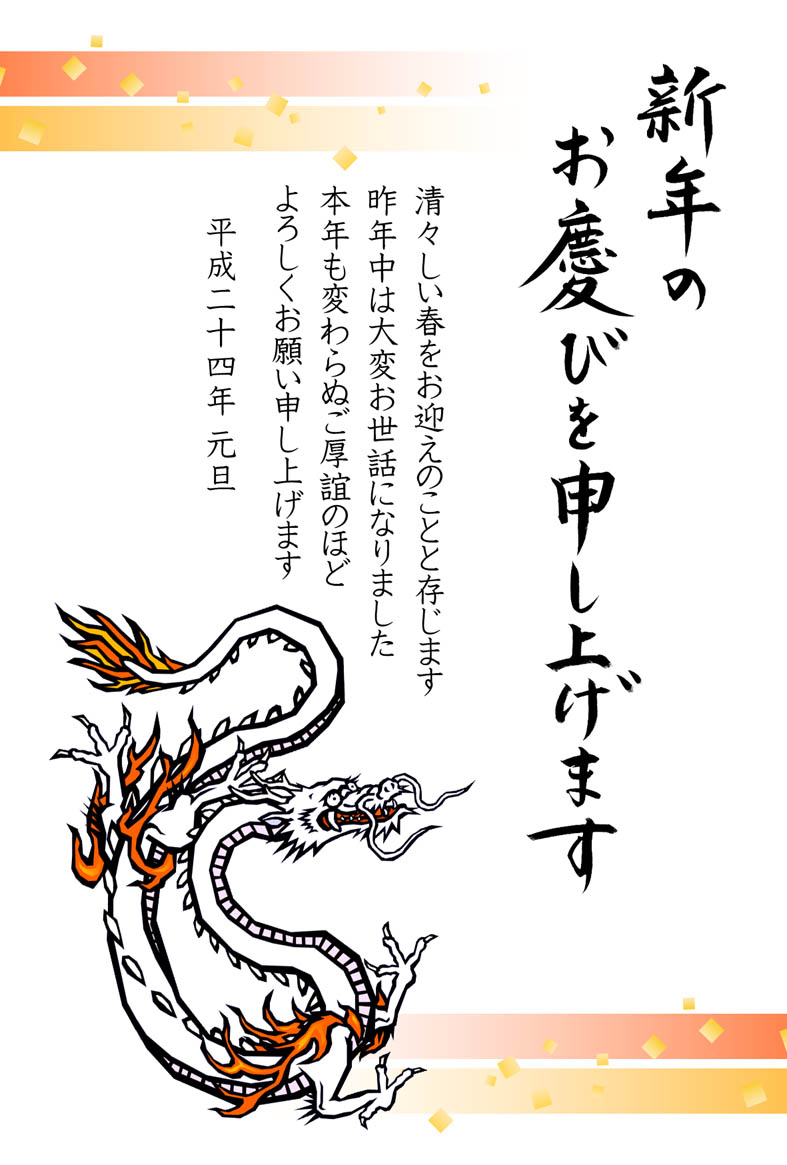 新年の
お慶びを申し上げます
清々しい春をお迎えのことと存じます
昨年中は大変お世話になりました
本年も変わらぬご厚誼のほど
よろしくお願い申し上げます
平成二十四年 元旦